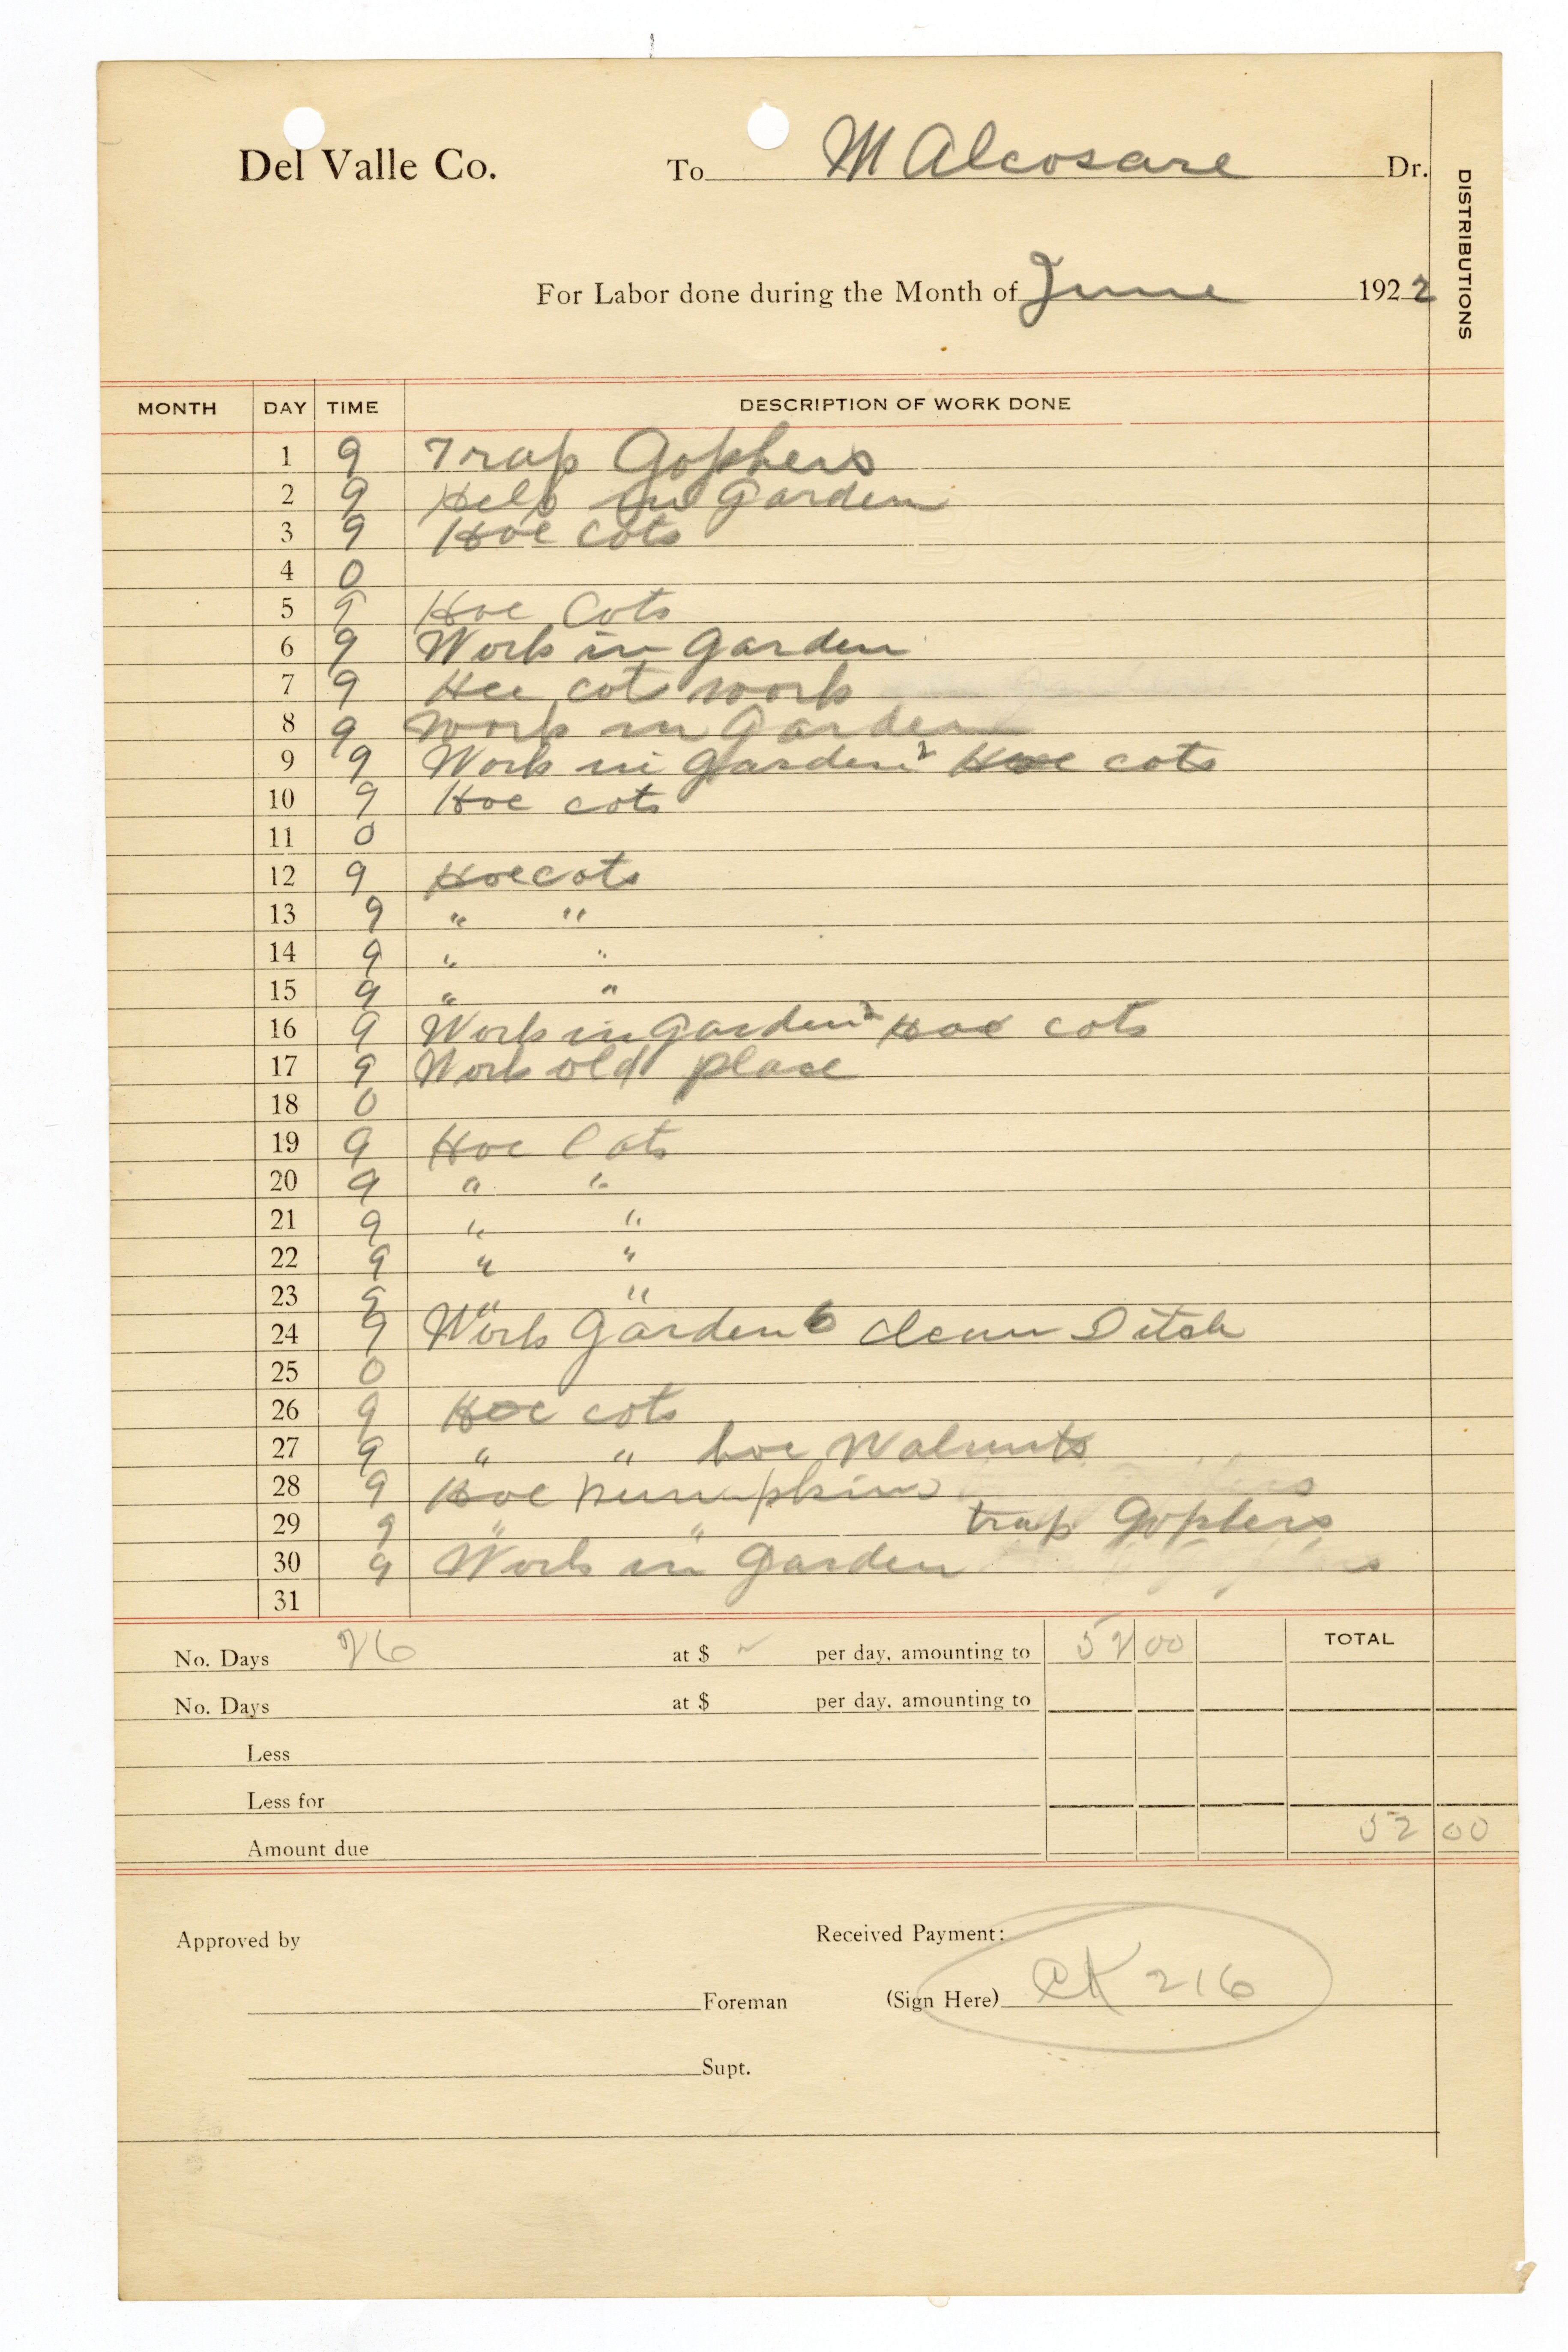 Del Valle Co. To M Alcosare Dr.
DISTRIBUTIONS
For Labor done during the Month of June 1922
MONTH DAY TIME DESCRIPTION OF WORK DONE
1 9 Trap Gophers
2 9 Help in Garden
3 9 Hoe Cots
4 0
5 9 Hoe Cots
6 9 Work in garden
7 9 Hee cots work
8 9 Work in Garden
9 9 Work in garden Hoe cots
10 9 Hoe cots
11 0
12 9 Hoe cots
13 9 " "
14 9 " "
15 9 " "
16 9 Work in garden Hoe cots
17 9 Work old place
18 0
19 9 Hoe Cots
20 9 " "
21 9 " "
22 9 " "
23 9 " "
24 9 Work Garden clean Ditch
25 0
26 9 Hoe cots
27 9 " " hoe Walnuts
28 9 Hoe
29 9 " " trap Gophers
30 9 Work in Garden
31
No. Days 26 at $ per day, amounting to 52 00 TOTAL
No. Days at $ per day, amounting to
Less
Less for
Amount due 52 00
Approved by Received Payment:
Foreman (Sign Here) CK 216
Supt.